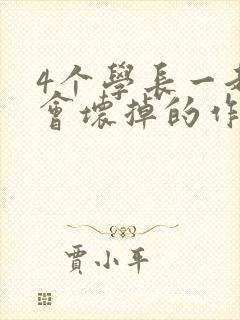 4个學長一起
會壞掉的作
賈小平